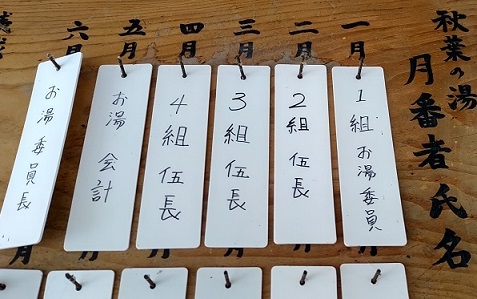 秋葉の湯
月番者氏名
一月
1組 お湯委員
二月
2組 伍長
三月
3組 伍長
四月
4組 伍長
五月
お湯 会計
六月
お湯委員長